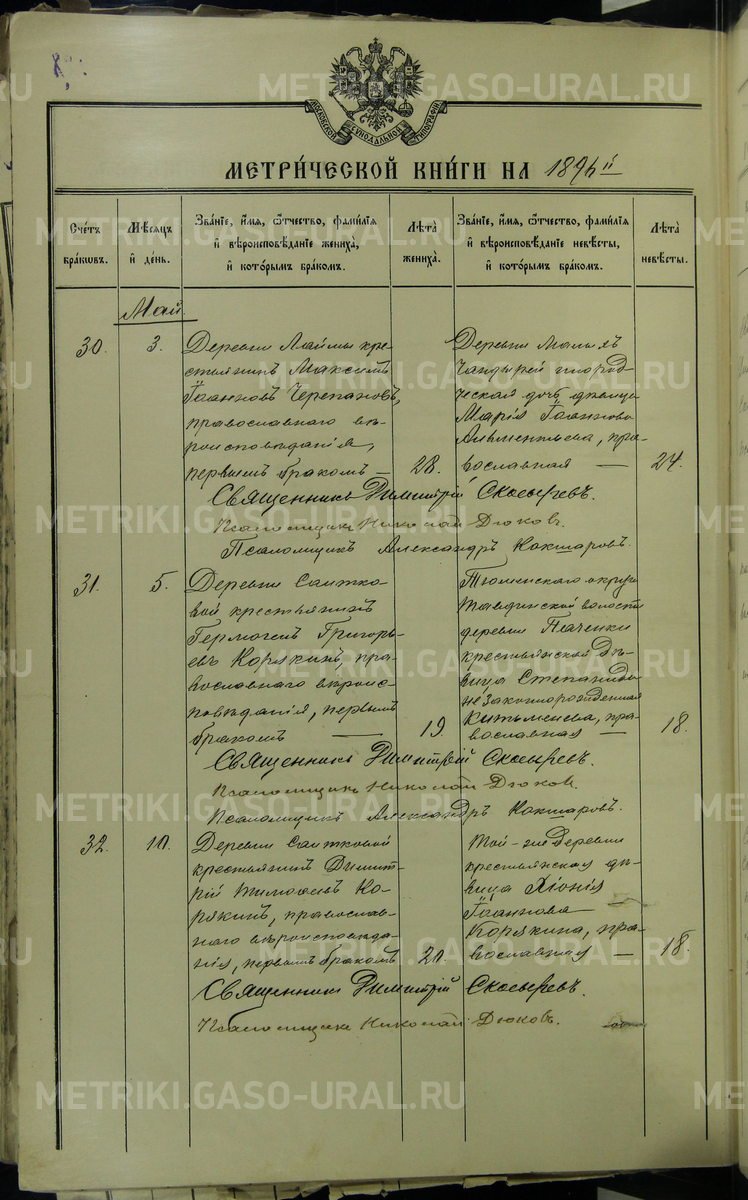 METRIKI.GASO-URAL.RU
МОСКОВСКОЙ СѴНОДАЛЬНОЙ ТИПОГРАФІИ
МЕТРИ́ЧЕСКОЙ КНИ́ГИ НА 1896й
Сче́тъ бра́кωвъ.
Мѣ́сяцъ и҆ де́нь.
Зва́нїе, и҆́мя, ѻ҆́тчество, фами́лїя и҆ вѣроисповѣ́данїе жениха̀, и҆ кото́рымъ бра́комъ.
Лѣ́та жениха̀.
Зва́нїе, и҆́мя, ѻ҆́тчество, фами́лїя и҆ вѣроисповѣ́данїе невѣ́сты, и҆ кото́рымъ бра́комъ.
Лѣ́та невѣ́сты.
Май
30.
3.
Деревни Лаймы кре-
стьянинъ Максимъ
Іоанновъ Черепановъ,
православнаго вѣ-
роисповѣданія,
первымъ бракомъ —
28.
Деревни Малыхъ
Чандырей
дочь дѣвица
Марія Іоаннова
пра-
вославная —
24.
Священникъ Димитрій Скосыревъ.
Псаломщикъ Николай Дюковъ.
Псаломщикъ Александръ Кокшаровъ.
31.
5.
Деревни Саитко-
вой крестьянинъ
Гермогенъ Григорь-
евъ Корякинъ, пра-
вославнаго вѣроис-
повѣданія, первымъ
бракомъ —
19.
Тюменскаго округа
Тавдинской волости
деревни
крестьянская дѣ-
вица Степанида
незаконнорожденная
пра-
вославная —
18.
Священникъ Димитрій Скосыревъ.
Псаломщикъ Николай Дюковъ.
Псаломщикъ Александръ Кокшаровъ.
32.
10.
Деревни Саитковой
крестьянинъ Димит-
рій Тимоѳеевъ Ко-
рякинъ, православ-
наго вѣроисповѣда-
нія, первымъ бракомъ
20.
Той-же Деревни
крестьянская дѣ-
вица Хіонія
Іоаннова
Корякина, пра-
вославная —
18.
Священникъ Димитрій Скосыревъ.
Псаломщикъ Николай Дюковъ.